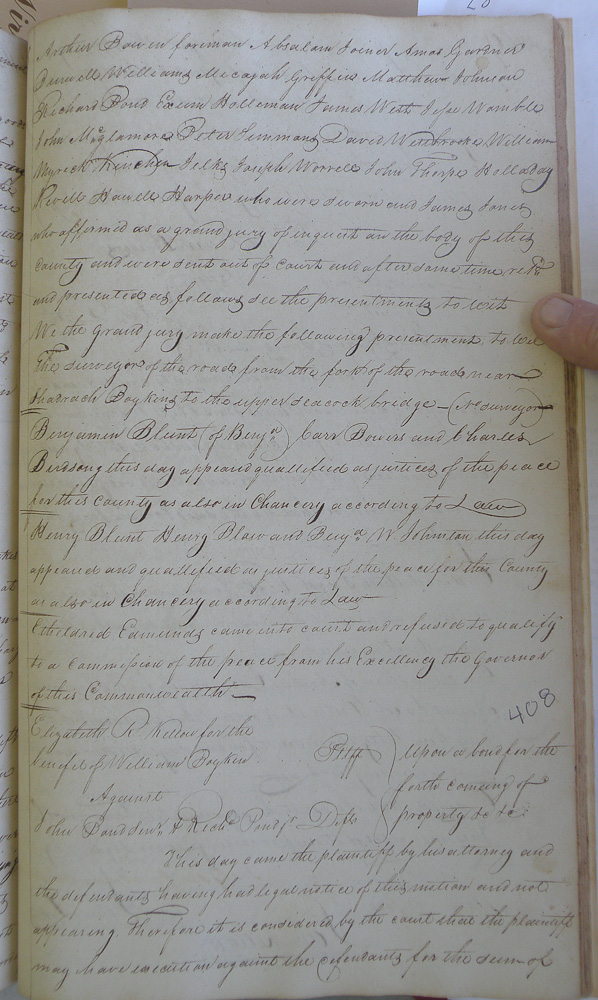 Arthur Bowen foreman Absalam Joiner Amos Gardner
Burwell Williams Mecajah Griffin Matthew Johnson
Richard Pond Exum Holleman James West Jesse Womble
John McGlamore Peter Simmons David Westbrooke William
Myrick Kinchen Jelks Joseph Worrell John Thorpe Holladay
Revell Howell Harper who were sworn and James Jones
who affirmed as a grand jury of inquest on the body of this
county and were sent out of court and after some time retd
and presented as follows see the presentments to wit
We the Grand jury make the following presentment. to wit
The surveyor of the road from the fork of the road near
Shadrach Boykins to the upper seacock bridge - (No surveyor
Benjamin Blunt (of Benjn) Carr Bowers and Charles
Birdsong this day appeard qualified as justices of the peace
for this county as also in Chancery according to Law
Henry Blunt Henry Blow and Benjn W Johnson this day
appeared and qualified as justices of the peace for this County
as also in Chancery according to Law
Etheldred Edmunds came into court and refused to qualify
to a Commission of the peace from his Excellency the Governor
of this Commonwealth -
408
Elizabeth R for the
benefit of William Boykin Pltff
Against
John Richd Pond jr Defts
Upon a bond for the
forth coming of
property &c &c:
This day came the plaintiff by his attorney and
the defendants having had legal notice of this motion and not
appearing. Therefore it is considered by the court that the plaintiff
may have execution against the defendants for the sum of